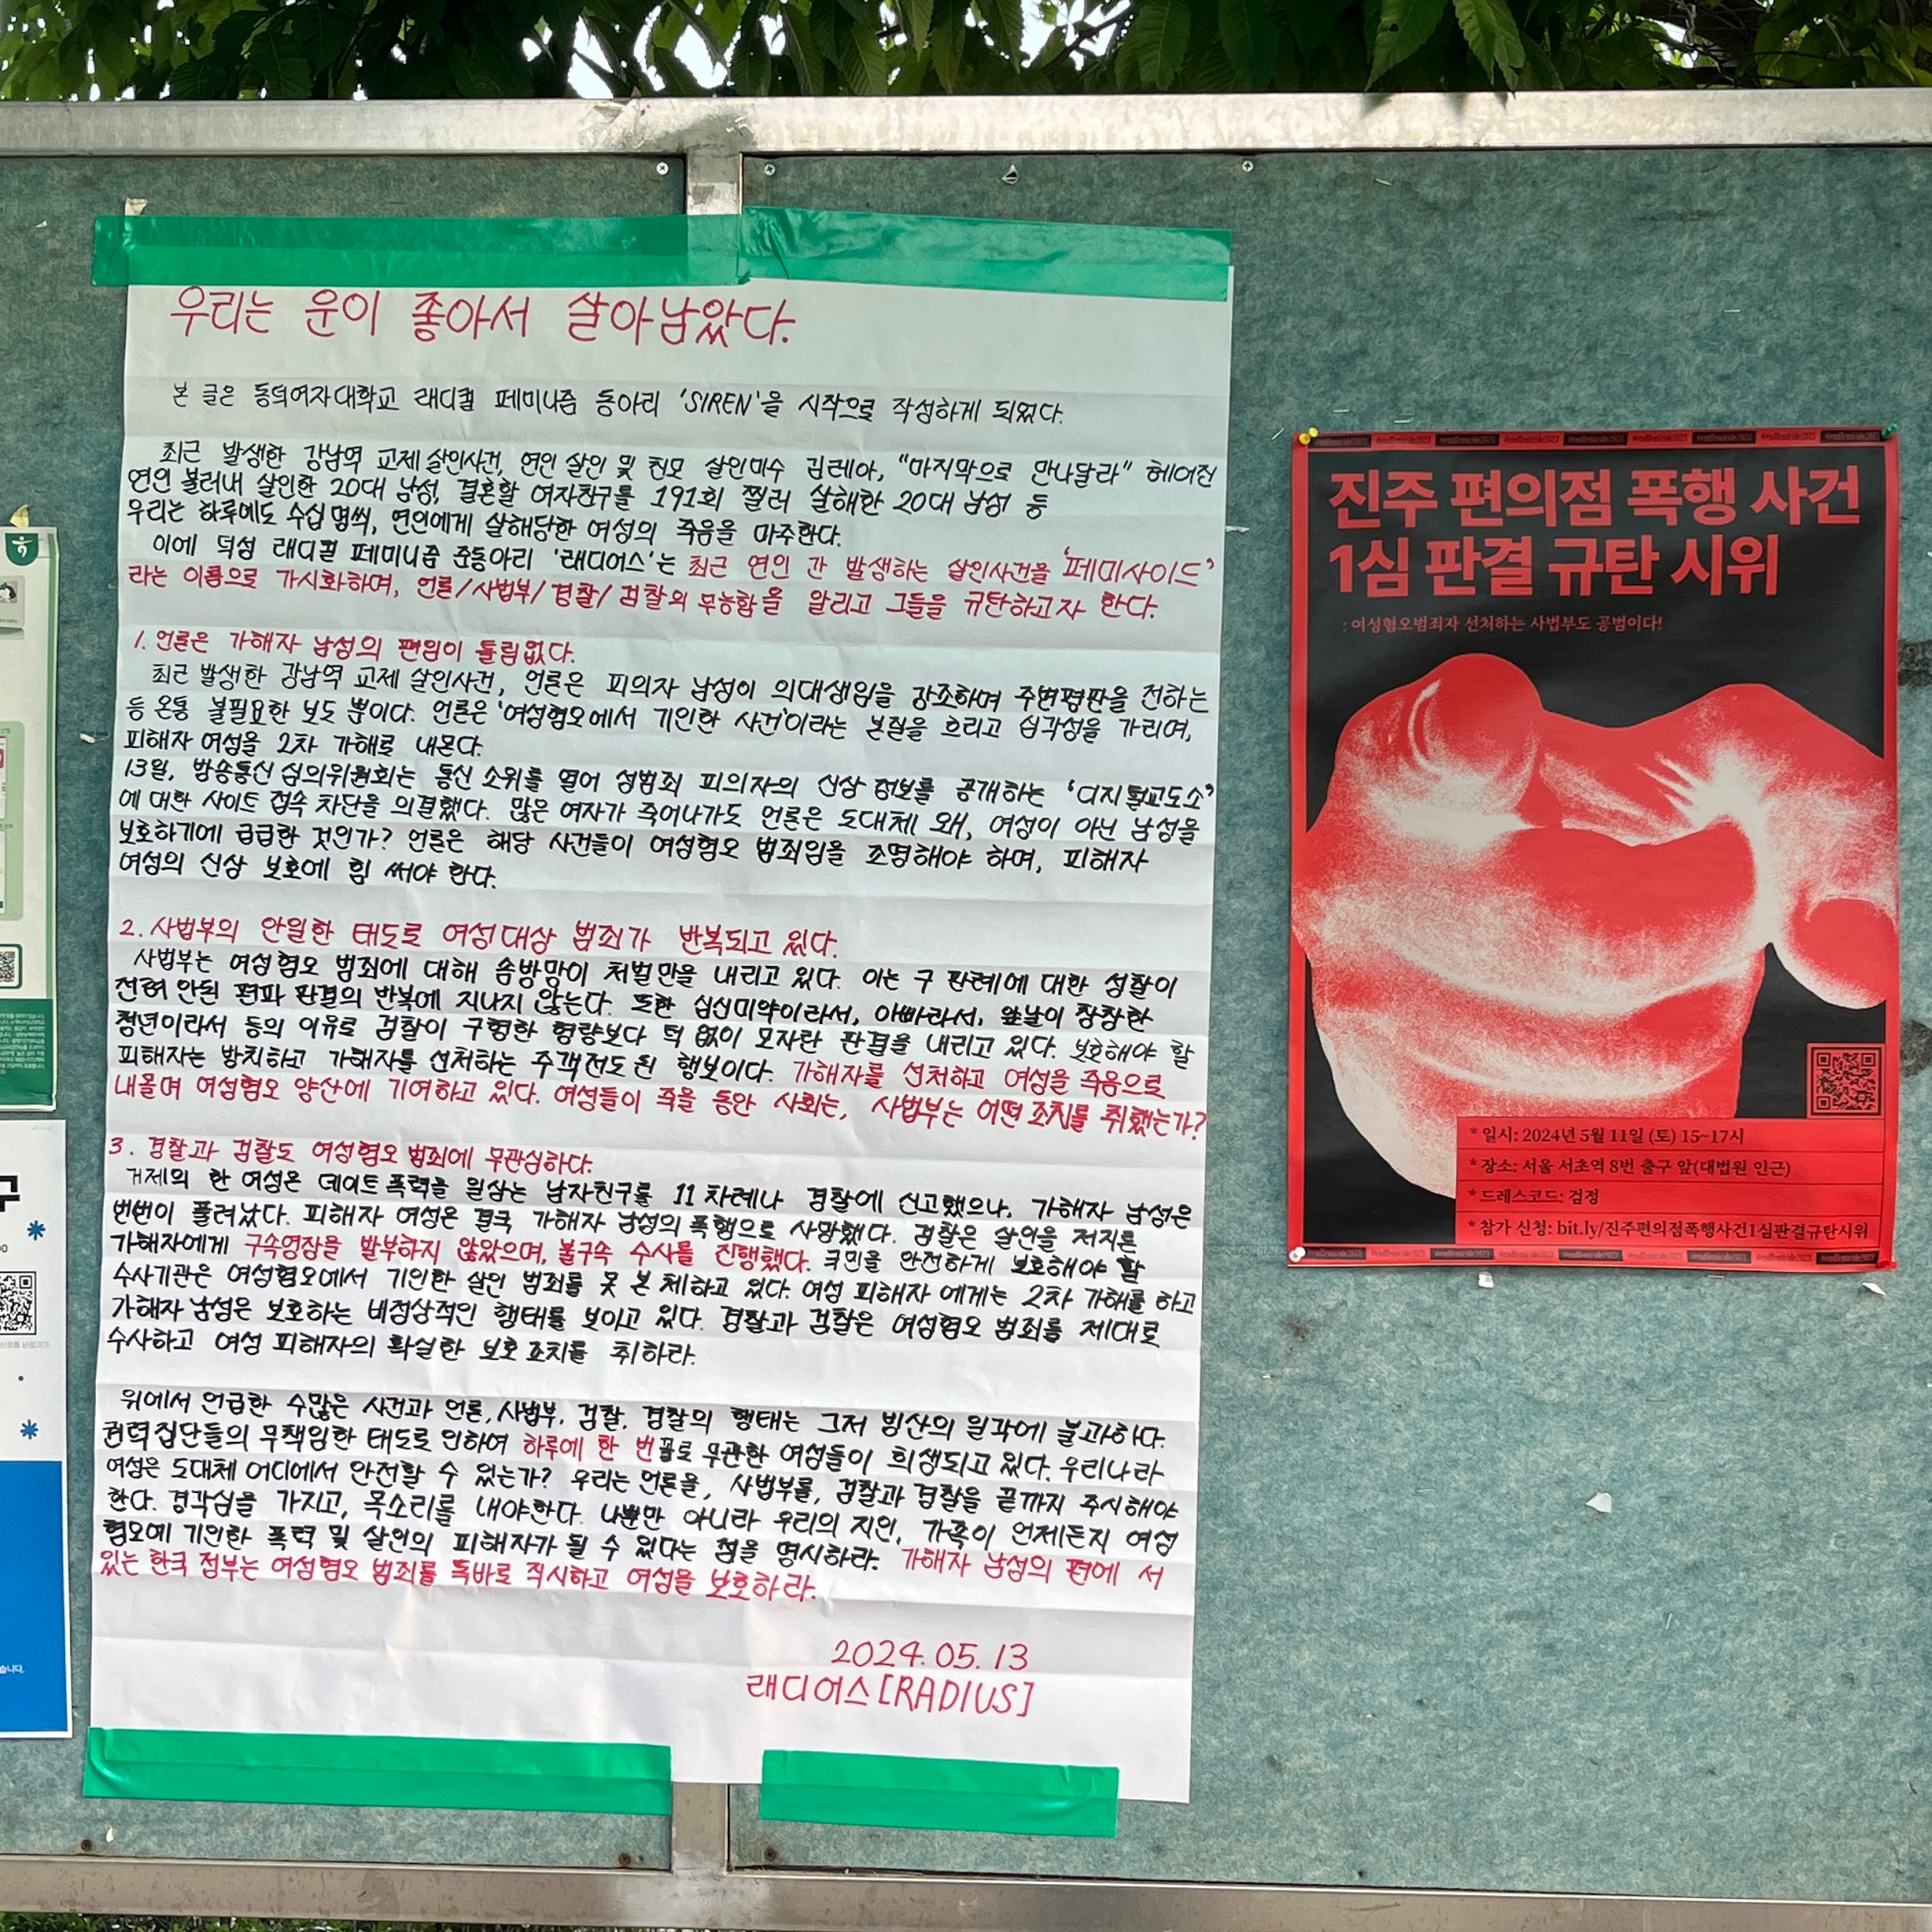 우리는 운이 좋아서 살아남았다.
본 글은 동덕여자대학교 래디컬 페미니즘 동아리 'SIREN'을 시작으로 작성하게 되었다.
최근 발생한 강남역 교제 살인사건, 연인 살인 및 친모 살인미수 김레아, "마지막으로 만나달라" 헤어진
연인 불러내 살인한 20대 남성, 결혼할 여자친구를 191회 찔러 살해한 20대 남성 등
우리는 하루에도 수십 명씩, 연인에게 살해당한 여성의 죽음을 마주한다.
이에 덕성 래디컬 페미니즘 준동아리 '래디어스'는 최근 연인 간 발생하는 살인사건을 '페미사이드'
라는 이름으로 가시화하며, 언론/사법부/경찰/검찰의 무능함을 알리고 그들을 규탄하고자 한다.
1. 언론은 가해자 남성의 편임이 틀림없다.
최근 발생한 강남역 교제 살인사건, 언론은 피의자 남성이 의대생임을 강조하며 주변평판을 전하는
등 온통 불필요한 보도 뿐이다. 언론은 '여성혐오에서 기인한 사건'이라는 본질을 흐리고 심각성을 가리며,
피해자 여성을 2차 가해로 내몬다.
13일, 방송통신심의위원회는 통신 소위를 열어 성범죄 피의자의 신상 정보를 공개하는 '디지털교도소'
에 대한 사이트 접속 차단을 의결했다. 많은 여자가 죽어나가도 언론은 도대체 왜, 여성이 아닌 남성을
보호하기에 급급한 것인가? 언론은 해당 사건들이 여성혐오 범죄임을 조명해야 하며, 피해자
여성의 신상 보호에 힘 써야 한다.
2. 사법부의 안일한 태도로 여성대상 범죄가 반복되고 있다.
사법부는 여성혐오 범죄에 대해 솜방망이 처벌만을 내리고 있다. 이는 구 판례에 대한 성찰이
전혀 안된 편파 판결의 반복에 지나지 않는다. 또한 심신미약이라서, 아빠라서, 앞날이 창창한
청년이라서 등의 이유로 검찰이 구형한 형량보다 턱 없이 모자란 판결을 내리고 있다. 보호해야 할
피해자는 방치하고 가해자를 선처하는 주객전도된 행보이다. 가해자를 선처하고 여성을 죽음으로
내몰며 여성혐오 양산에 기여하고 있다. 여성들이 죽을 동안 사회는, 사법부는 어떤 조치를 취했는가?
3. 경찰과 검찰도 여성혐오 범죄에 무관심하다.
거제의 한 여성은 데이트폭력을 일삼는 남자친구를 11차례나 경찰에 신고했으나, 가해자 남성은
번번이 풀려났다. 피해자 여성은 결국 가해자 남성의 폭행으로 사망했다. 검찰은 살인을 저지른
가해자에게 구속영장을 발부하지 않았으며, 불구속 수사를 진행했다. 국민을 안전하게 보호해야 할
수사기관은 여성혐오에서 기인한 살인 범죄를 못 본 체하고 있다. 여성 피해자에게는 2차 가해를 하고
가해자 남성은 보호하는 비정상적인 행태를 보이고 있다. 경찰과 검찰은 여성혐오 범죄를 제대로
수사하고 여성 피해자의 확실한 보호 조치를 취하라.
위에서 언급한 수많은 사건과 언론, 사법부, 검찰, 경찰의 행태는 그저 빙산의 일각에 불과하다.
권력집단들의 무책임한 태도로 인하여 하루에 한 번꼴로 무관한 여성들이 희생되고 있다. 우리나라
여성은 도대체 어디에서 안전할 수 있는가? 우리는 언론을, 사법부를, 검찰과 경찰을 끝까지 주시해야
한다. 경각심을 가지고, 목소리를 내야한다. 나뿐만 아니라 우리의 지인, 가족이 언제든지 여성
혐오에 기인한 폭력 및 살인의 피해자가 될 수 있다는 점을 명시하라. 가해자 남성의 편에 서
있는 한국 정부는 여성혐오 범죄를 똑바로 직시하고 여성을 보호하라.
2024.05.13
래디어스[RADIUS]
진주 편의점 폭행 사건
1심 판결 규탄 시위
: 여성혐오범죄자 선처하는 사법부도 공범이다!
* 일시: 2024년 5월 11일 (토) 15~17시
* 장소: 서울 서초역 8번 출구 앞(대법원 인근)
* 드레스코드: 검정
* 참가 신청: bit.ly/진주편의점폭행사건1심판결규탄시위